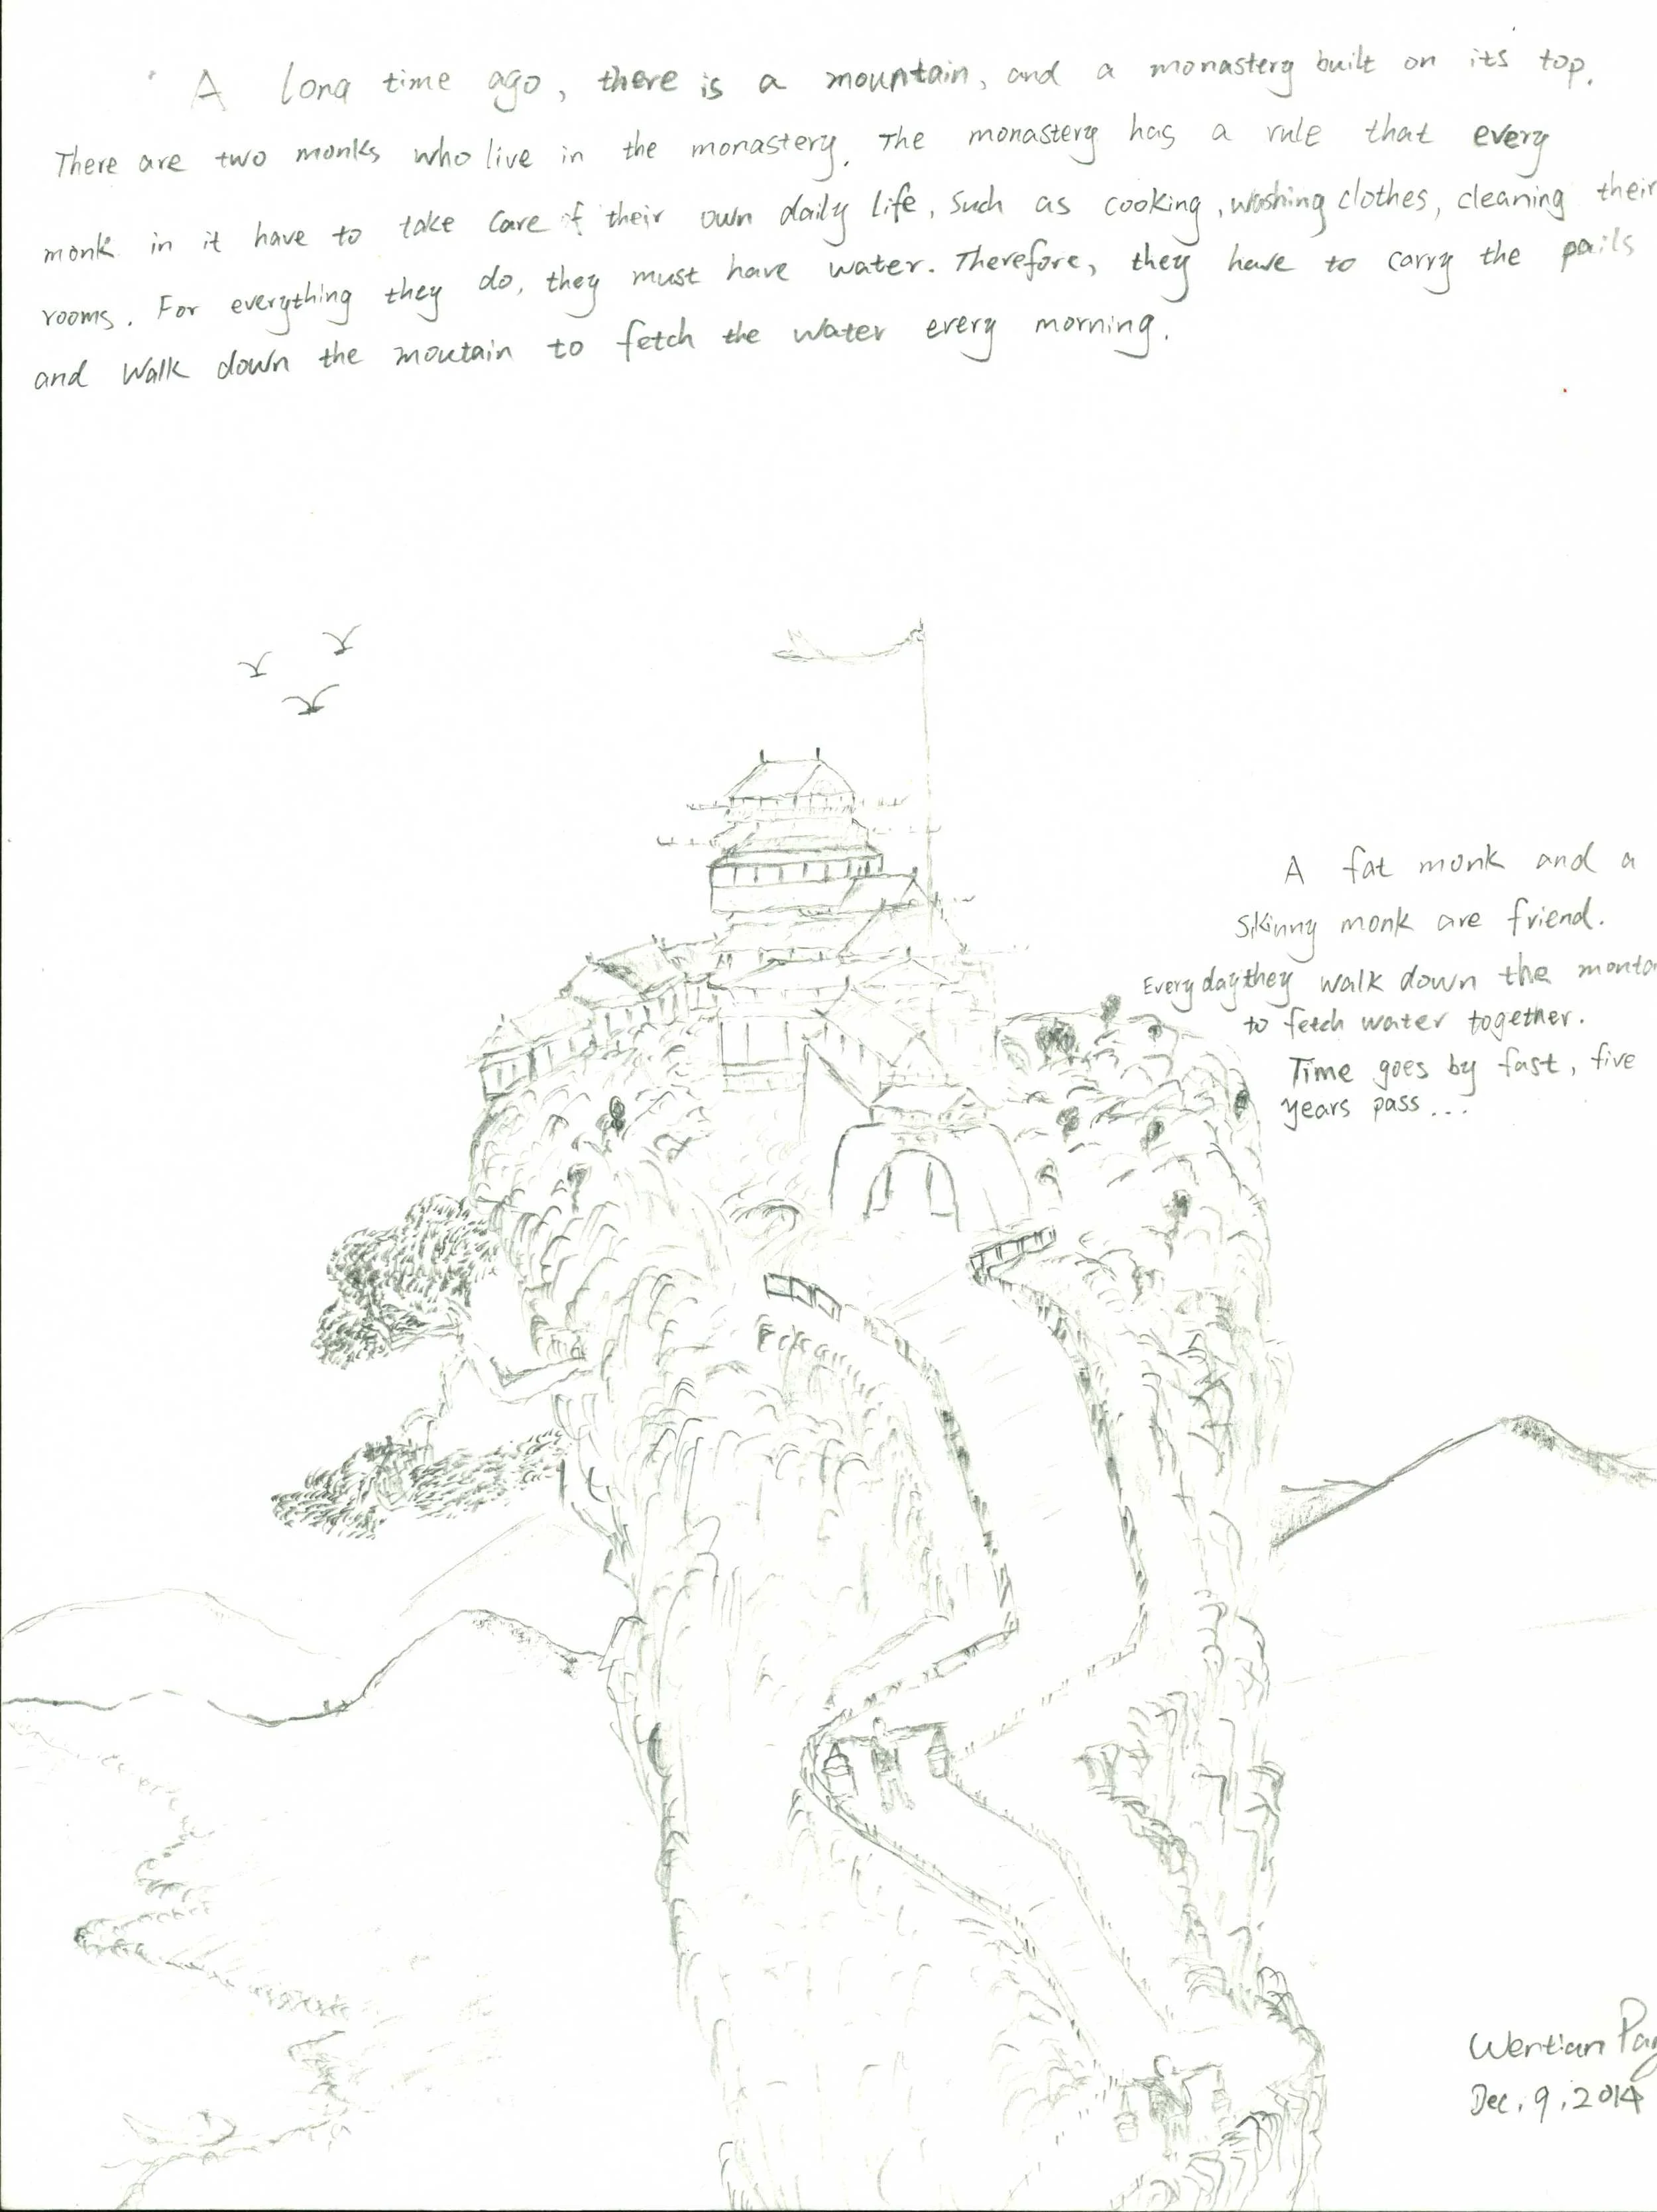 A long time ago, there is a mountain, and a monastery built on its top.
There are two monks who live in the monastery. The monastery has a rule that every
monk in it have to take care of their own daily life, such as cooking, washing clothes, cleaning their
rooms. For everything they do, they must have water. Therefore, they have to carry the pails
and walk down the moutain to fetch the water every morning.
A fat monk and a
skinny monk are friend.
Everyday they walk down the
to fetch water together.
Time goes by fast, five
years pass...
Wentian
Dec. 9. 2014